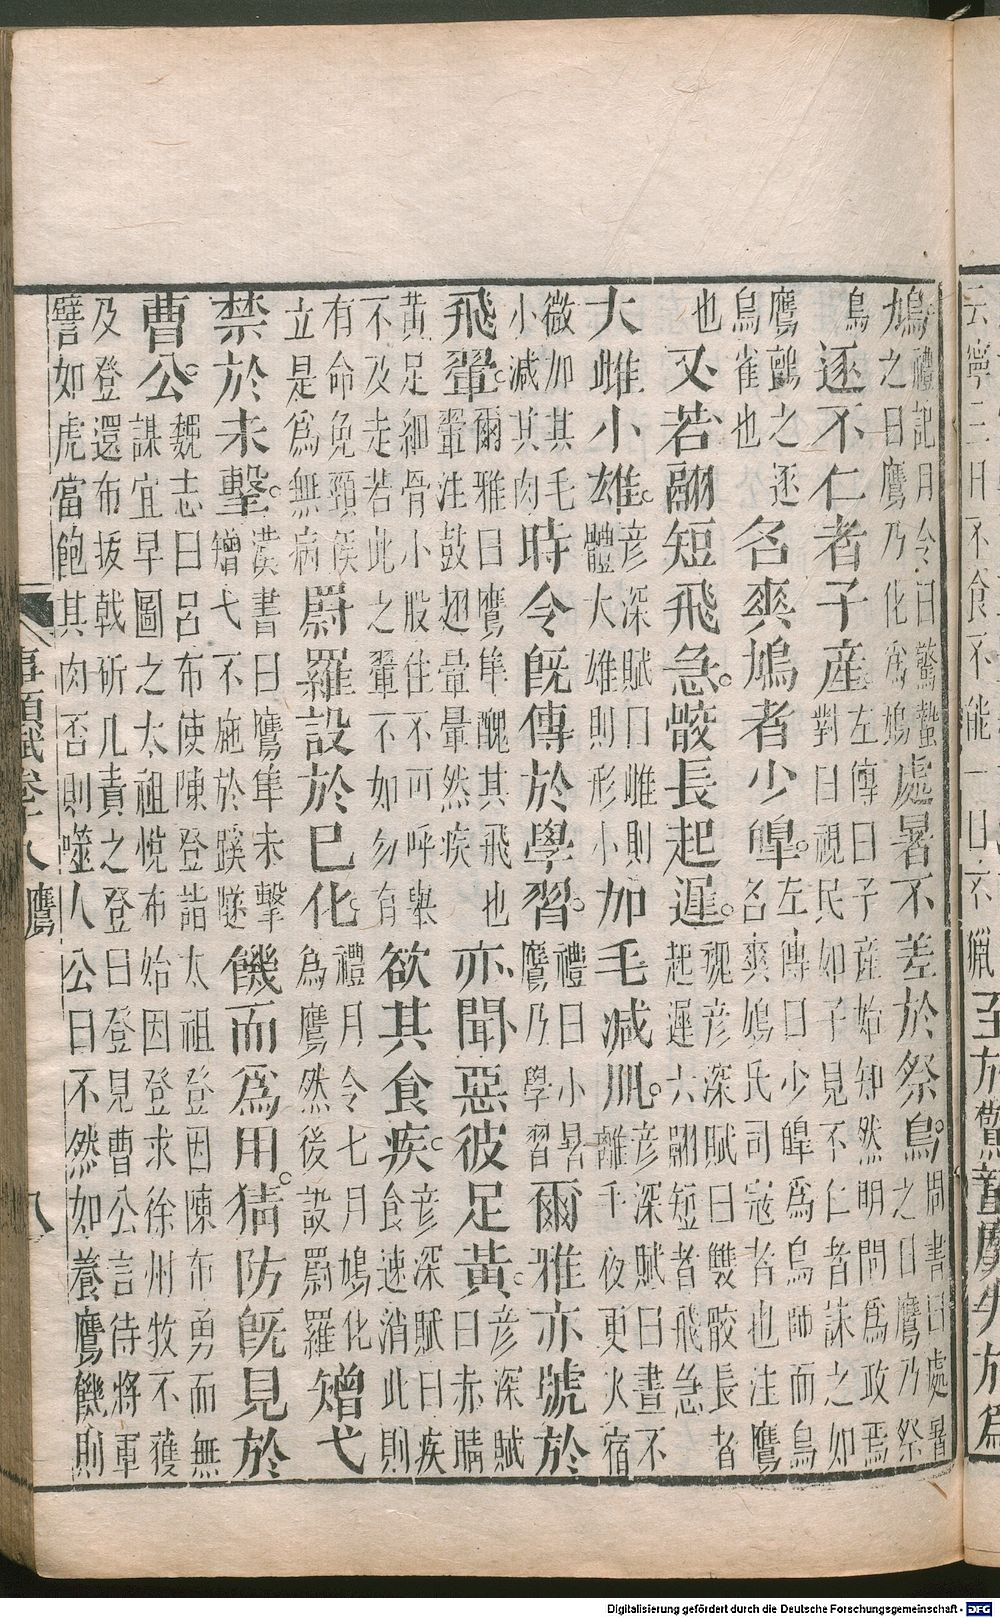 云寧三日不食不能一日不獵至於驚蟄靡失於為
鳩禮記月令曰驚蟄之日鷹乃化為鳩處暑不差於祭鳥。周書曰處暑之日鷹乃祭
鳥逐不仁者子產左傳曰子產始知然明問為政焉對曰視民如子見不仁者誅之如
鷹鸇之逐鳥雀也名爽鳩者少皥。左傳曰少皥為鳥師而鳥名爽鳩氏司寇者也注鷹
也又若翮短飛急。骹長起遲。魏彦深賦曰雙骹長者起遲六翮短者飛急
大雌小雄。彦深賦曰雌則體大雄則形小加毛減肌。彦深賦曰晝不離手夜更火宿
微加其毛小減其肉時令旣傳於學習。禮曰小暑鷹乃學習爾雅亦號於
飛翬。爾雅曰鷹隼醜其飛也翬注鼓翅翬翬然疾亦聞惡彼足黃。彦深賦曰赤睛
黃足細骨小股住不可呼舉不及走若此之翬不如勿有欲其食疾。彦深賦曰疾食速消此則
有命免頸候立是為無病罻羅設於巳化。禮月令七月鳩化為鷹然後設罻羅矰弋
禁於未擊。漢書曰鷹隼未擊矰弋不施於蹊隧饑而為用。猜防旣見於
曹公。魏志曰呂布使陳登詣太祖登因陳布勇而無謀宜早圖之太祖悅布始因登求徐州牧不獲
及登還布拔戟斫几責之登曰登見曹公言待將軍譬如虎當飽其肉否則噬人公曰不然如養鷹饑則
事類賦卷十八 鷹 八
Digitalisierung gefördert durch die Deutsche Forschungsgemeinschaft - DFG